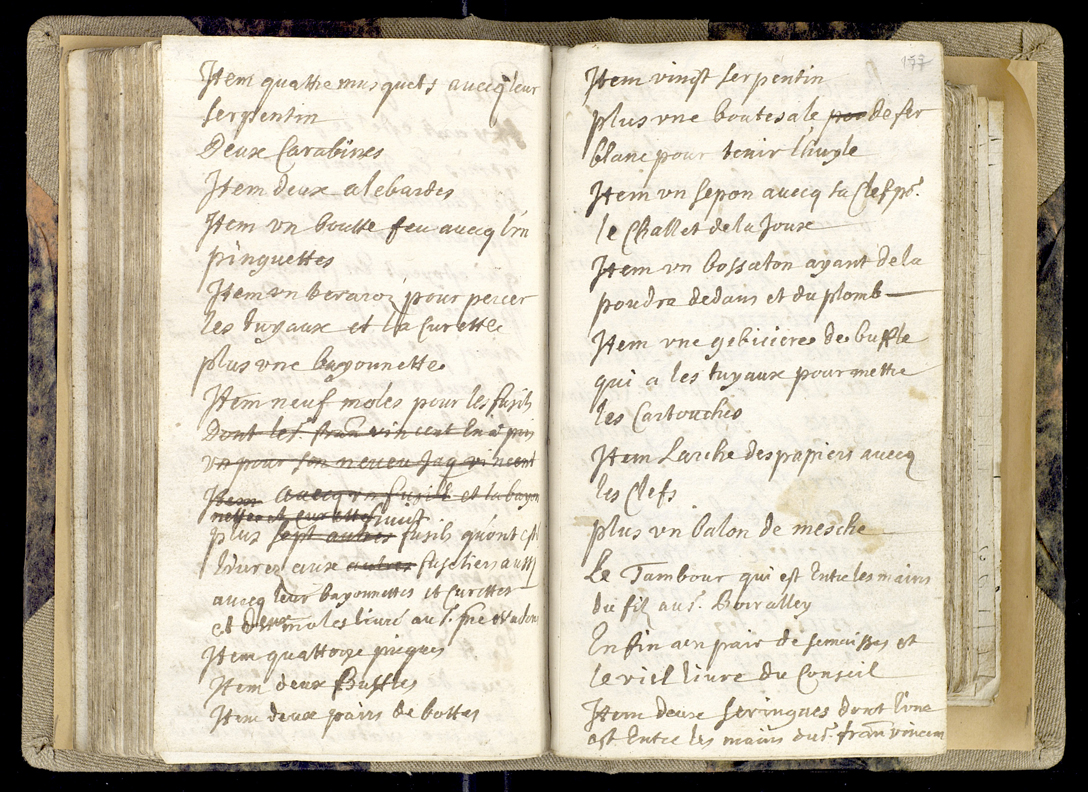 Item quattre musquets aucq leur
serpentin
Deux Carabines
Item deux alebardes
Item vn boutte feu aucq
pinguettes
Item vn pour percer
les tuyaux et la Curette
plus vne bayonnette
Item neuf moles pour les fusils
Dont le sr. fran vincent En a pris
vn pour son neueu Jaq vincent
Item aucq vn fusil et la bayo
nette et Curette
neuf
plus sept autres fusils quont est
liurez aux autres fuseliers aussy
aucq leur bayonnettes et Curettes
et moles liuré au sr.
Item quattorze picques
Item deux Buffles
Item deux pairs de bottes
157
Item vingt serpentin
plus vne boutesale de fer
blanc pour tenir lhuyle
Item vn sepon aucq sa Clef pr.
le Challet de la Joux
Item vn bossaton ayant de la
poudra dedans et du plomb
Item vne gibiciere de buffle
qui a les tuyaux pour mettre
les Cartouches
Item Larche des papiers auecq
les Clefs
plus vn balon de mesche
Le Tambour qui est Entre les mains
du fil au sr. Boiralley
Enfin vn pair de semaisses et
le viel liure du Conseil
Item deux seringues dont l'une
est Entre les mains du sr. fran vincen